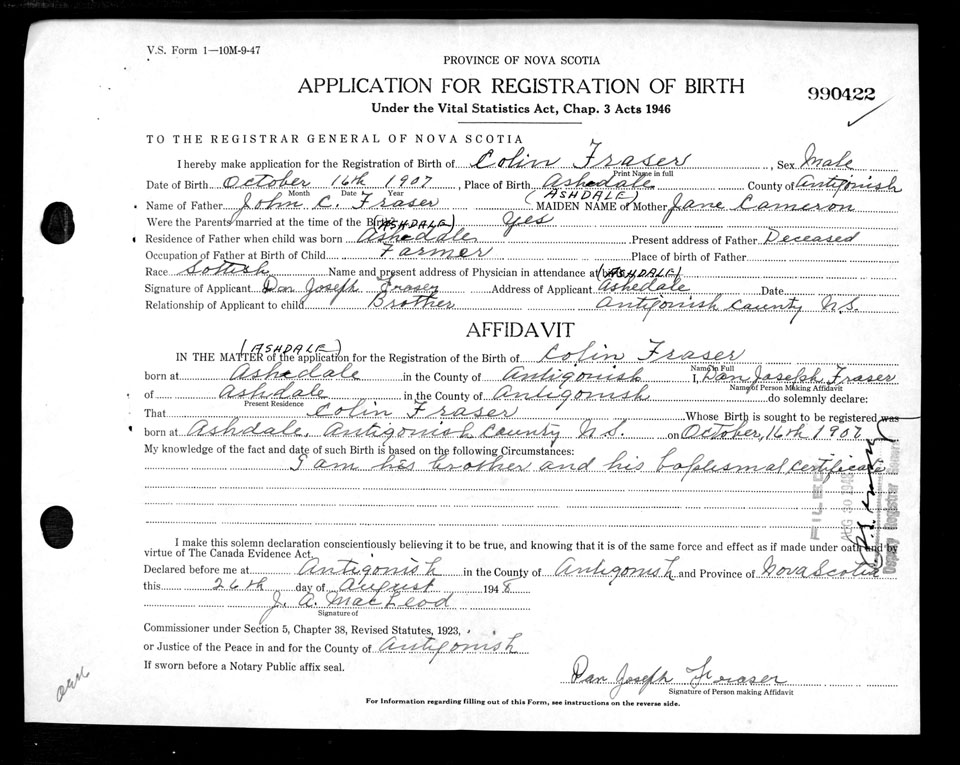 V.S. Form 1—10M-9-47
PROVINCE OF NOVA SCOTIA
APPLICATION FOR REGISTRATION OF BIRTH
990422
Under the Vital Statistics Act, Chap. 3 Acts 1946
TO THE REGISTRAR GENERAL OF NOVA SCOTIA
I hereby make application for the Registration of Birth of Colin Fraser, Sex Male
Print Name in full
Date of Birth October 16th 1907, Place of Birth Ashedale County of Antigonish
Month Date Year (ASHDALE)
Name of Father John C. Fraser MAIDEN NAME of Mother Jane Cameron
Were the Parents married at the time of the Birth Yes
(ASHDALE)
Residence of Father when child was born Ashedale Present address of Father Deceased
Occupation of Father at Birth of Child Farmer Place of birth of Father
Race Sottish Name and present address of Physician in attendance at (ASHDALE)
Signature of Applicant Dan Joseph Fraser Address of Applicant Ashedale Date
Relationship of Applicant to child Brother Antigonish County N.S.
AFFIDAVIT
(ASHDALE)
IN THE MATTER of the application for the Registration of the Birth of Colin Fraser
Name in Full
born at Ashedale in the County of Antigonish I, Dan Joseph Fraser
Name of Person Making Affidavit
of Ashdale in the County of Antigonish do solemnly declare:
Present Residence
That Colin Fraser Whose Birth is sought to be registered was
born at Ashdale, Antigonish County N.S. on October, 16th 1907
My knowledge of the fact and date of such Birth is based on the following Circumstances:
I am his brother and his baptismal certificate
FILED
AUG 30 1948
Deputy Registrar General
I make this solemn declaration conscientiously believing it to be true, and knowing that it is of the same force and effect as if made under oath and by
virtue of The Canada Evidence Act.
Declared before me at Antigonish in the County of Antigonish and Province of Nova Scotia
this 26th day of August 1948
J. A. MacLeod
Signature of
Commissioner under Section 5, Chapter 38, Revised Statutes, 1923,
or Justice of the Peace in and for the County of Antigonish
If sworn before a Notary Public affix seal.
Dan Joseph Fraser
Signature of Person making Affidavit
For Information regarding filling out of this Form, see instructions on the reverse side.